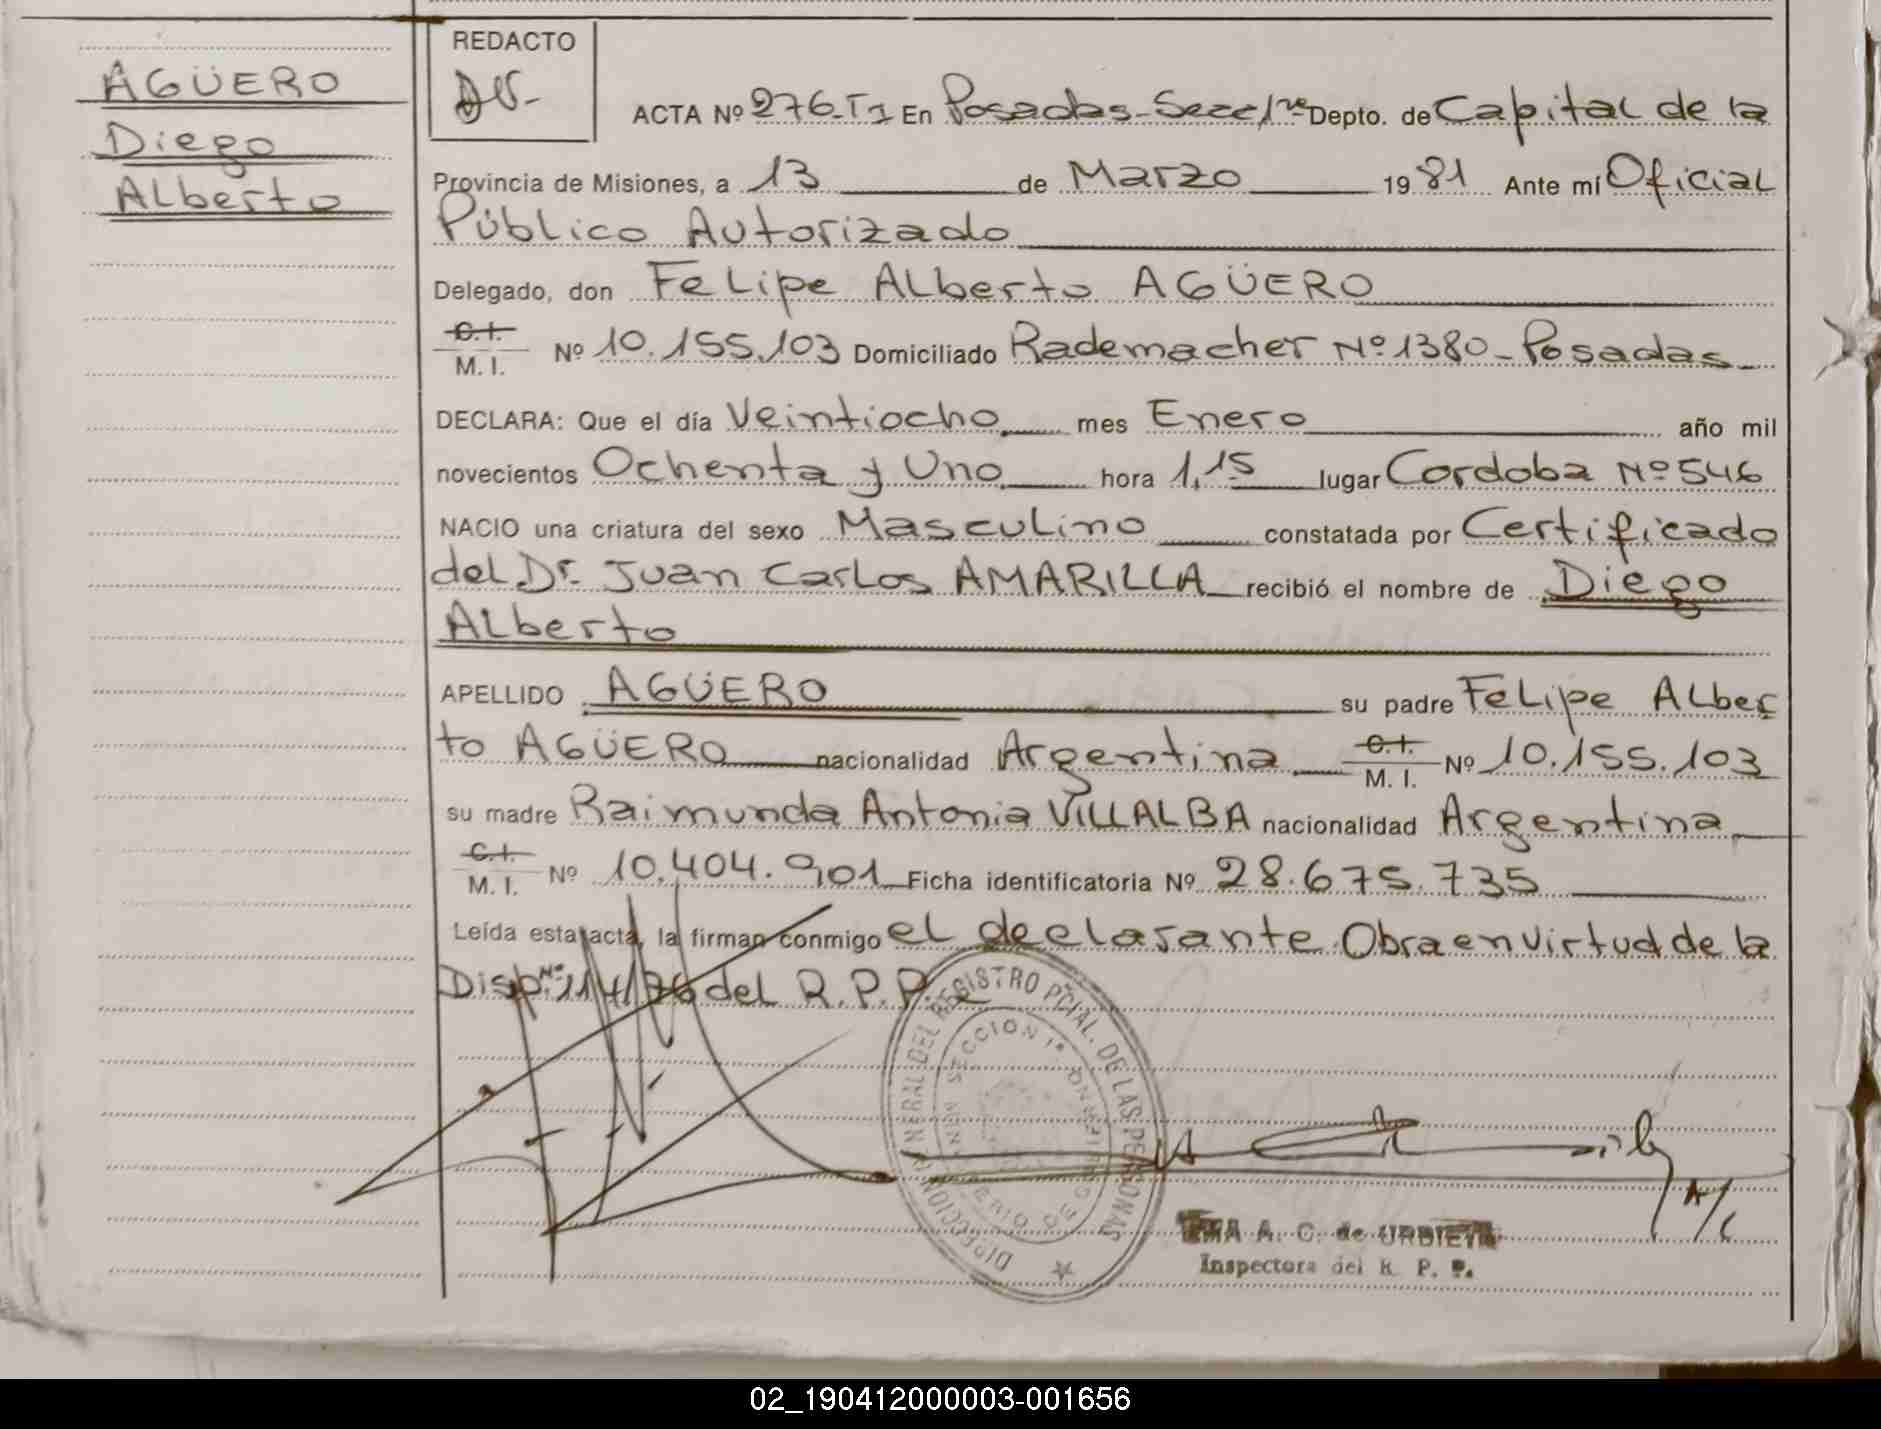 AGÜERO
Diego
Alberto
REDACTO
ACTA Nº 276-T1 En Posadas-Secc/1ra Depto. de Capital de la
Provincia de Misiones, a 13 de Marzo 1981 Ante mí Oficial
Público Autorizado
Delegado, don Felipe Alberto AGÜERO
C.I.
M. I. Nº 10.155.103 Domiciliado Rademacher Nº 1380-Posadas
DECLARA: Que el día Veintiocho mes Enero año mil
novecientos Ochenta y Uno hora 1,15 lugar Cordoba Nº 546
NACIO una criatura del sexo Masculino constatada por Certificado
del Dr. Juan Carlos AMARILLA recibió el nombre de Diego
Alberto
APELLIDO AGÜERO su padre Felipe Alber
to AGÜERO nacionalidad Argentina C.I. M. I. Nº 10.155.103
su madre Raimunda Antonia VILLALBA nacionalidad Argentina
C.I.
M. I. Nº 10.404.901 Ficha identificatoria Nº 28.675.735
Leída esta acta, la firman conmigo el declarante Obra en virtud de la
Disp. Nº 114/76 del R.P.P.
DIRECCION GENERAL DEL REGISTRO PCIAL. DE LAS PERSONAS
SECCION 1ª
MINISTERIO DE GOBIERNO
A. C. de URBIETA
Inspectora del R. P. P.
02_190412000003-001656